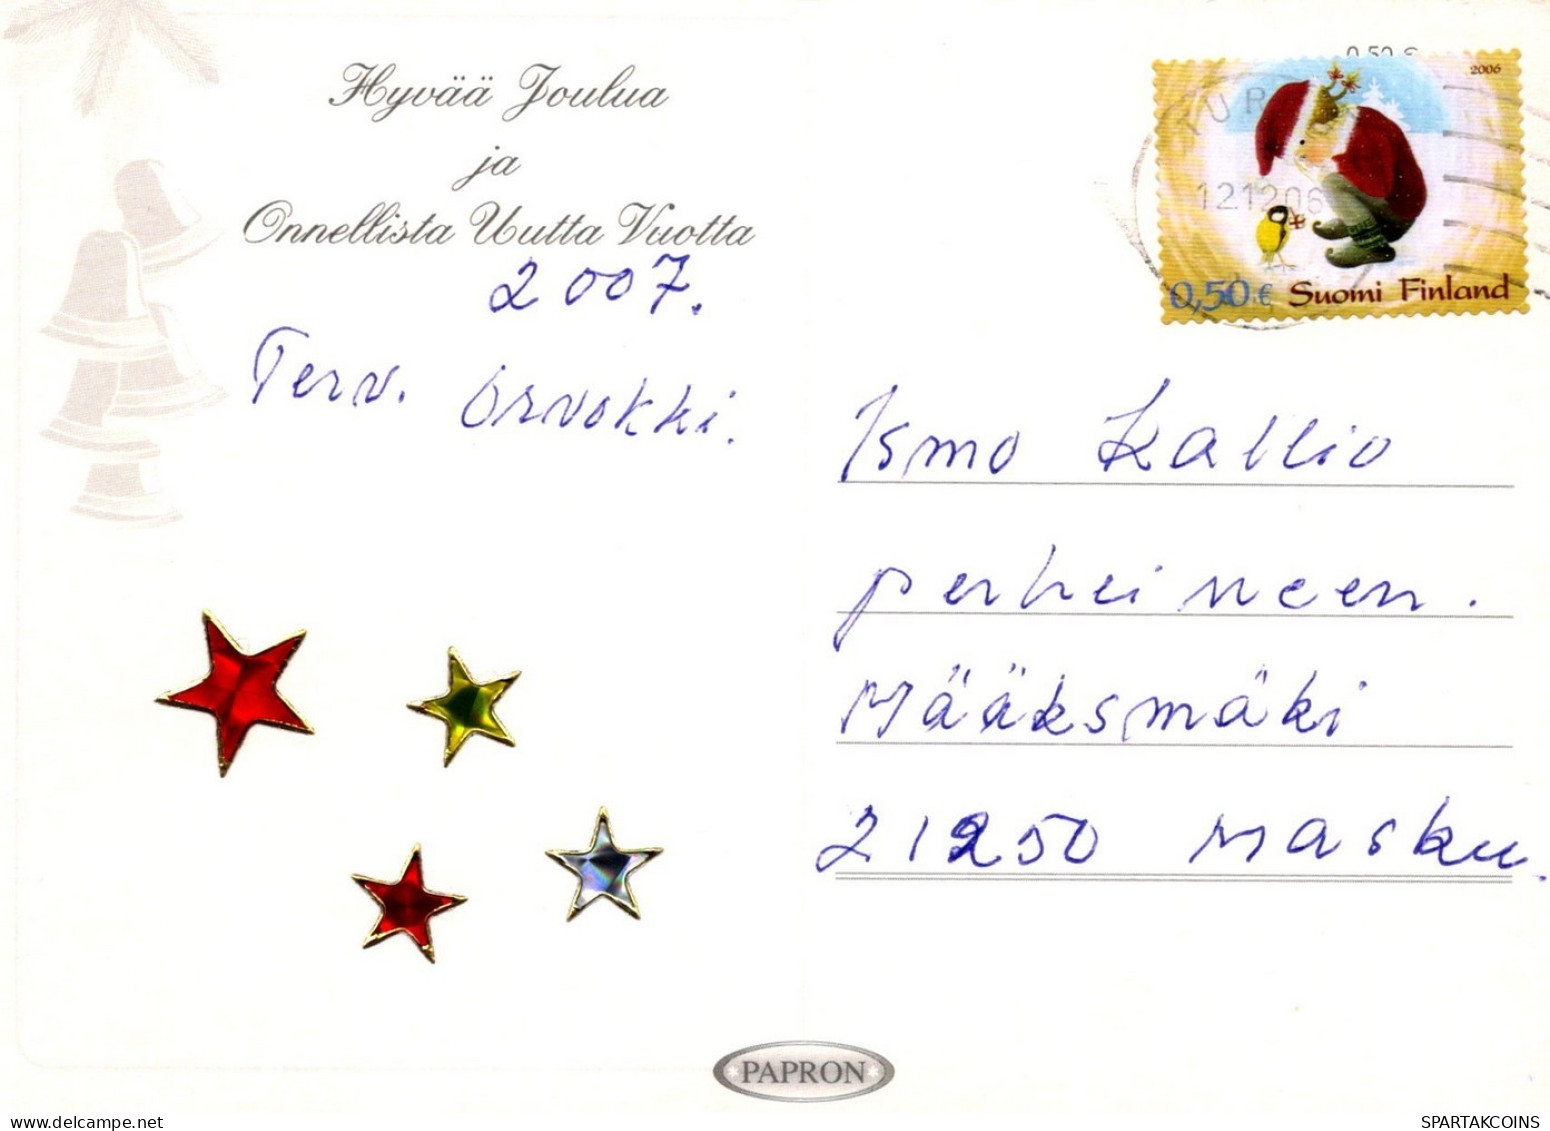 Hyvää Joulua
ja
Onnellista Uutta Vuotta
2007.
Terv. Orvokki.
0,50 €
2006
TUR
12.12.06
0,50 € Suomi Finland
Ismo Kallio
perheineen.
Määksmäki
21250 Masku.
PAPRON
SPARTAKCOINS